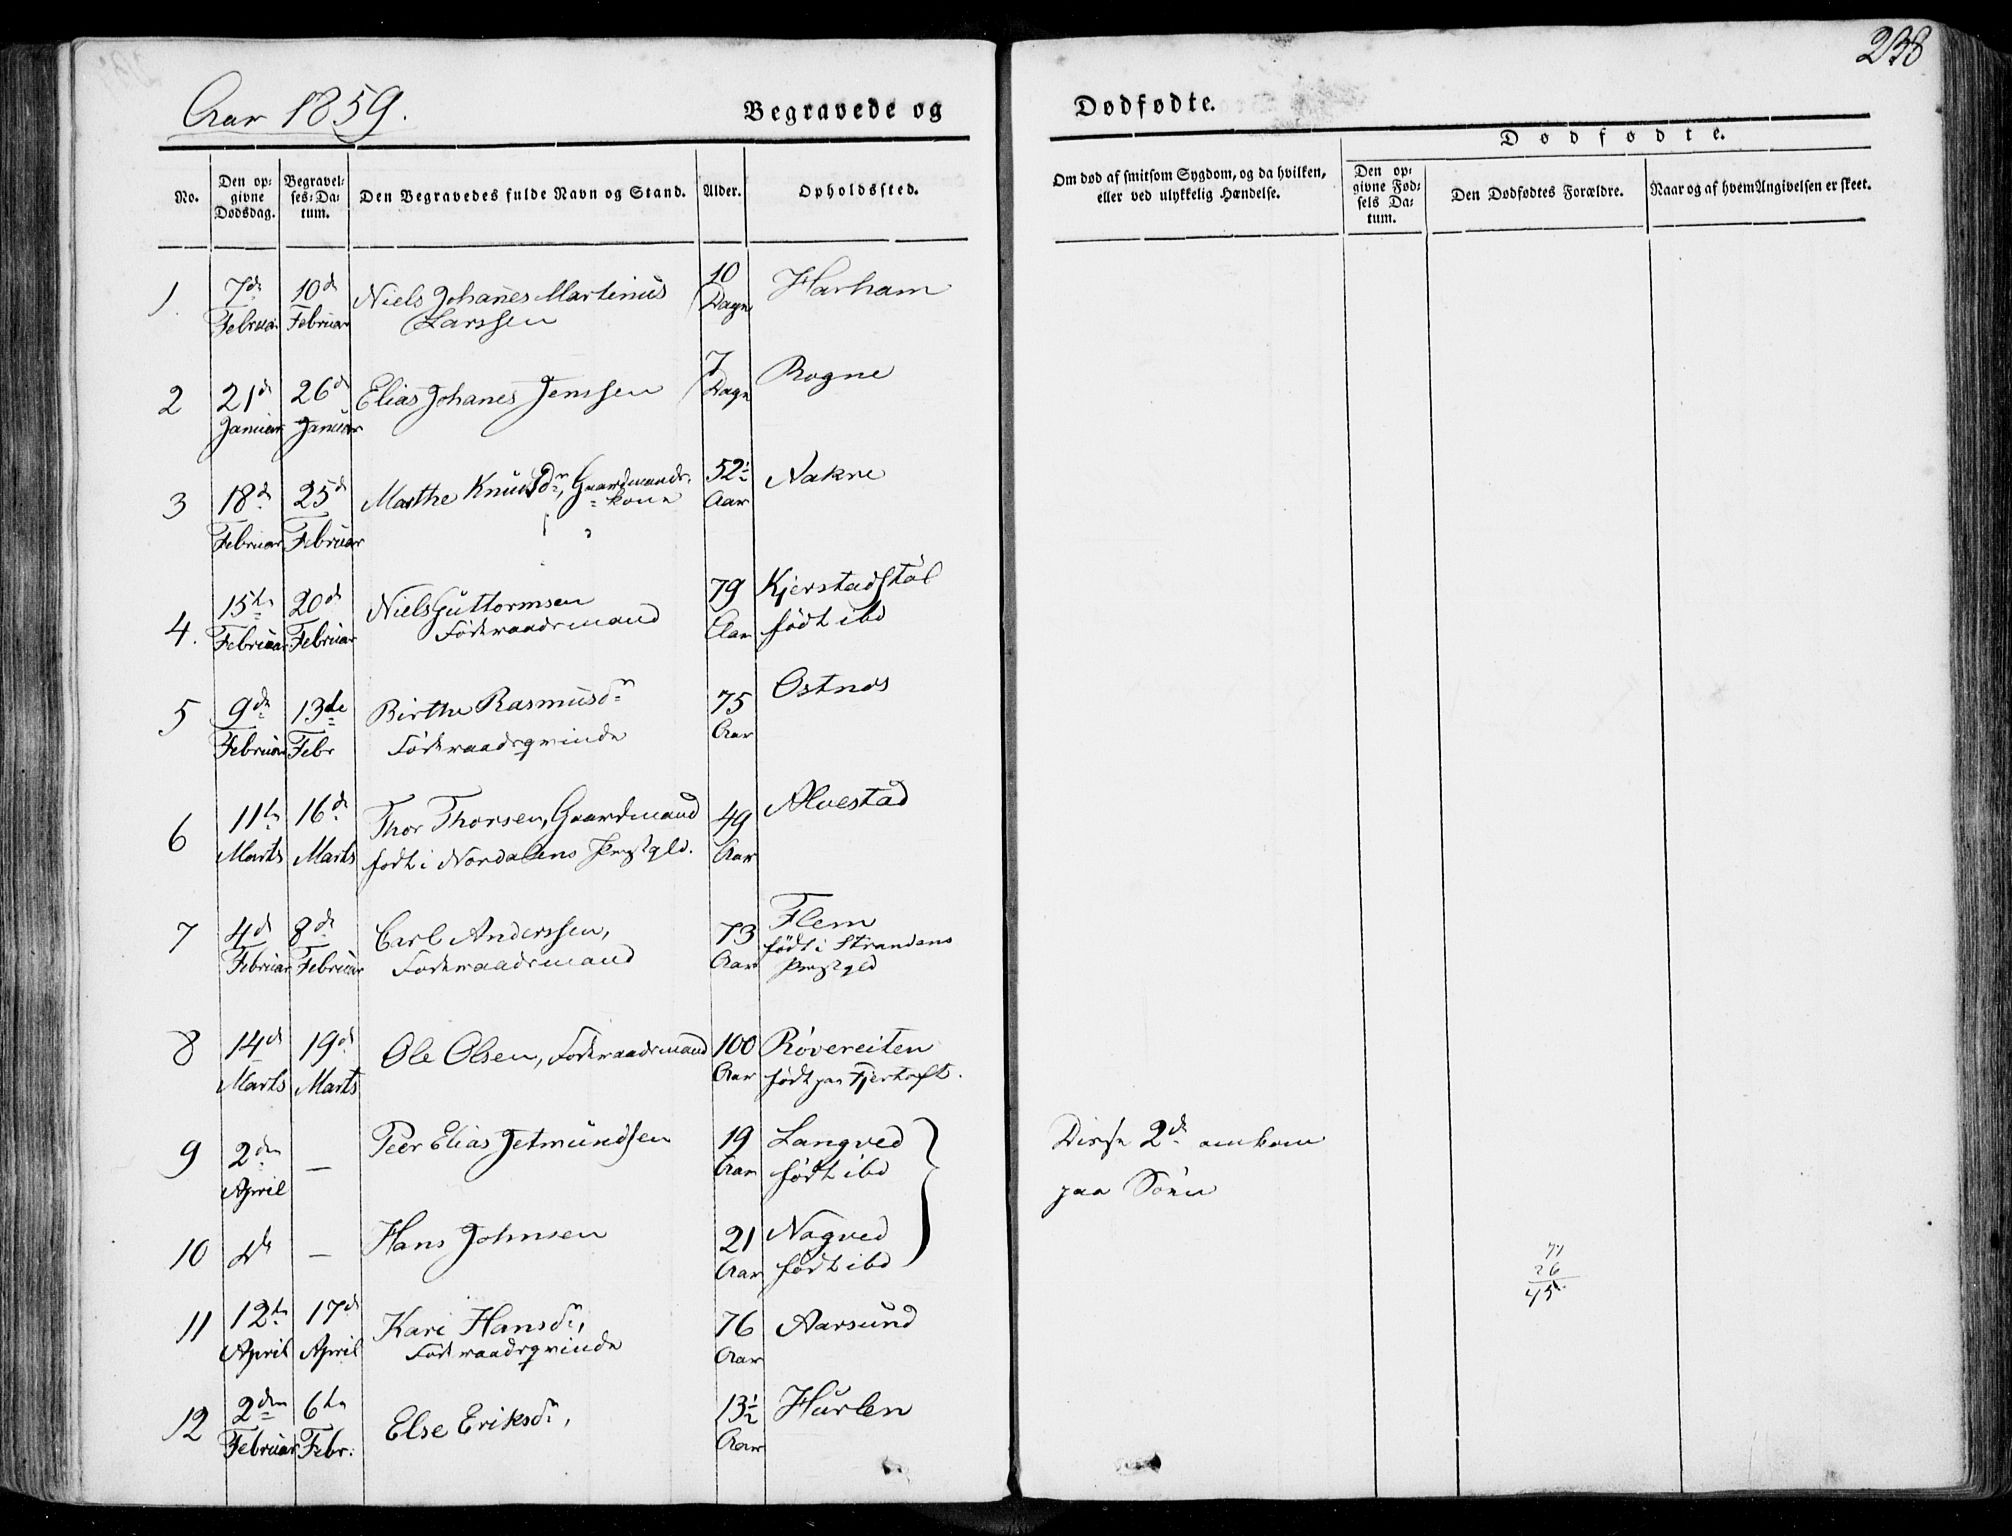 238
Aar 1859.
Begravede og
Dødfødte.
Dødfødte.
No.
Den op-
givne
Dødsdag.
Begravel-
ses-Da-
tum.
Den Begravedes fulde Navn og Stand.
Alder.
Opholdssted.
Om død af smitsom Sygdom, og da hvilken,
eller ved ulykkelig Hændelse.
Den op-
givne Fød-
sels Da-
tum.
Den Dødfødtes Forældre.
Naar og af hvem Angivelsen er skeet.
1. 7de 10de Niels Johanes Martinus 10 Harham
Februar Februar Larssen Dage
2 21de 26de Elias Johanes Jenssen 7 Rogne
Januar Januar Dage
3 18de 25de Marthe Knudsdr, Gaardmands- 52½ Nakne
Februar Februar kone Aar
4. 15de 20de Niels Guttormsen 79 Kjerstadstøl
Februar Februar Føderaadsmand Aar født ibd
5 9de 13de Birthe Rasmusdr 75 Ostnes
Februar Febr Føderaadsqvinde Aar
6 11te 16de Thor Thorsen, Gaardmand 49 Alvestad
Marts Marts født i Nordalens Præstgld. Aar
7 4de 8de Carl Anderssen, 73 Flem
Februar Februar Føderaadsmand Aar født i Strandens
Præstgld
8 14de 19de Ole Olsen, Føderaadsmand 100 Røvereiten
Marts Marts Aar født paa Fjertoft.
9 2den — Peer Elias Jetmundsen 19 Langved
April Aar født ibd
Disse 2de omkom
paa Søen
10 do — Hans Johnsen 21 Nogved
Aar født ibd
71
26
45
11 12te 17de Kari Hansdr, 76 Aarsund
April April Føderaadsqvinde Aar
12 2den 6te Else Eriksdr, 13½ Hurlen
Februar Febr. Aar